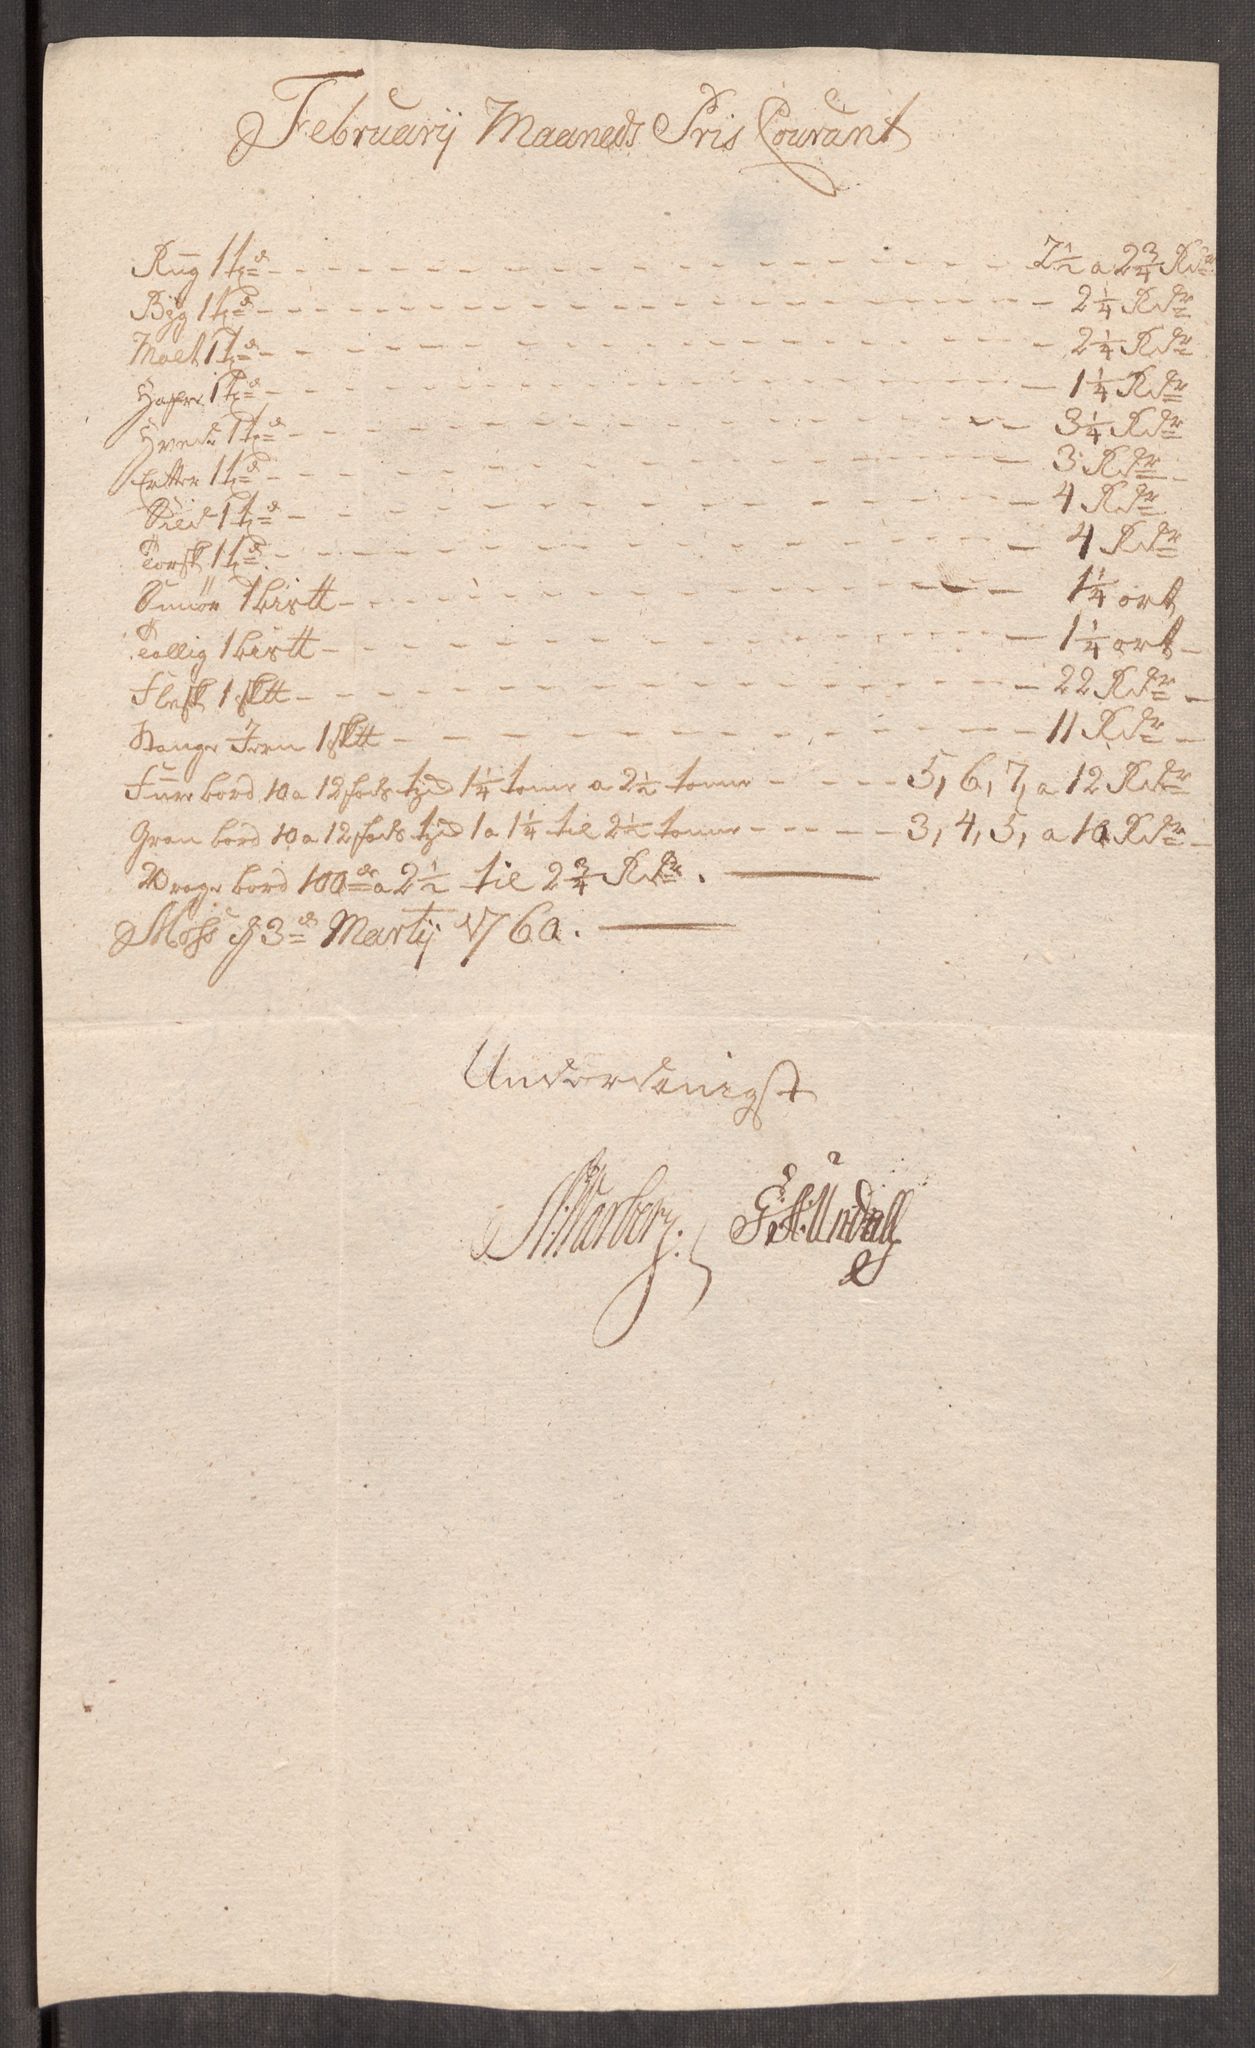 Februarij Maaneds Pris Courant
Rug 1 td 2 1/2 a 2 3/4 Rdr
Byg 1 td 2 1/4 Rdr
Malt 1 td 2 1/4 Rdr
Hafre 1 td 1 1/4 Rdr
Hvede 1 td 3 1/4 Rdr
Ertter 1 td 3 Rdr
Sild 1 td 4 Rdr
Torsk 1 td 4 Rdr
Smör 1 bistt 1 1/4 ort
Tallig 1 bistt 1 1/4 ort
Flesk 1 sktt 22 Rdr
Stange Jern 1 sktt 11 Rdr
Furre bord 10 a 12 fods tyd 1 1/4 tomme a 2 1/2 tomme 5, 6, 7, a 12 Rdr
Gran bord 10 a 12 fods tyd 1 a 1 1/4 til 2 1/2 tomme 3, 4, 5, a 10 Rdr
Vrage bord 100de a 2 1/2 til 2 3/4 Rdr.
Moss d 3d Martij 1760.
Underdanigst
N: Warberg. F. A. Undall